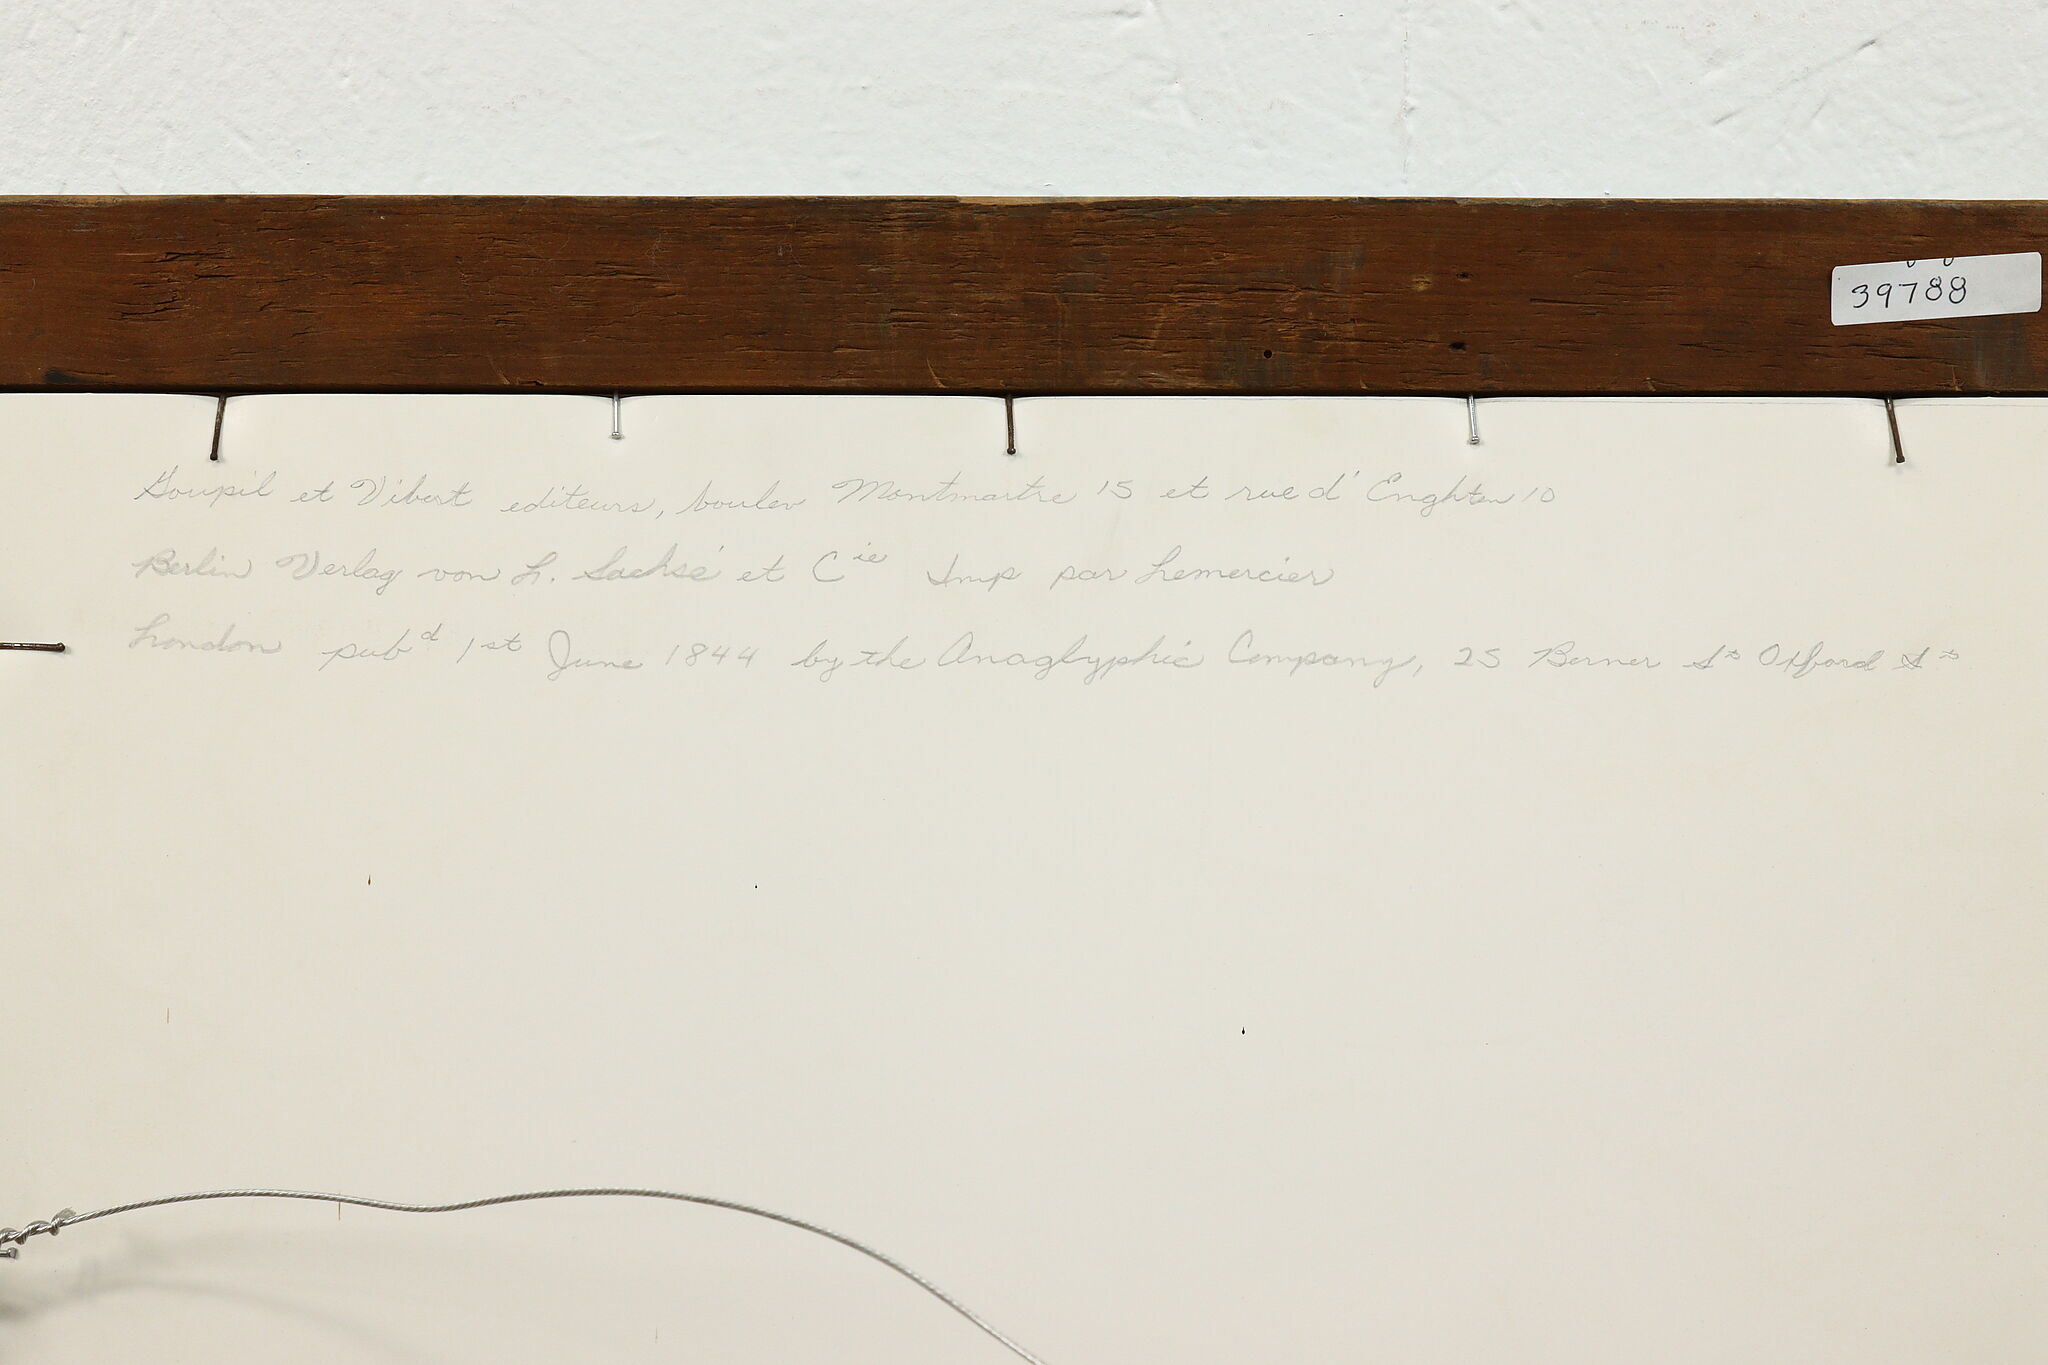 39788
Goupil et Vibert editeurs, boulev Montmartre 15 et rue d'Enghten 10
Berlin Verlag von L. Sachsé et Cie Imp par Lemercier
London pubd 1st June 1844 by the Anaglyphic Company, 25 Berner St Oxford St